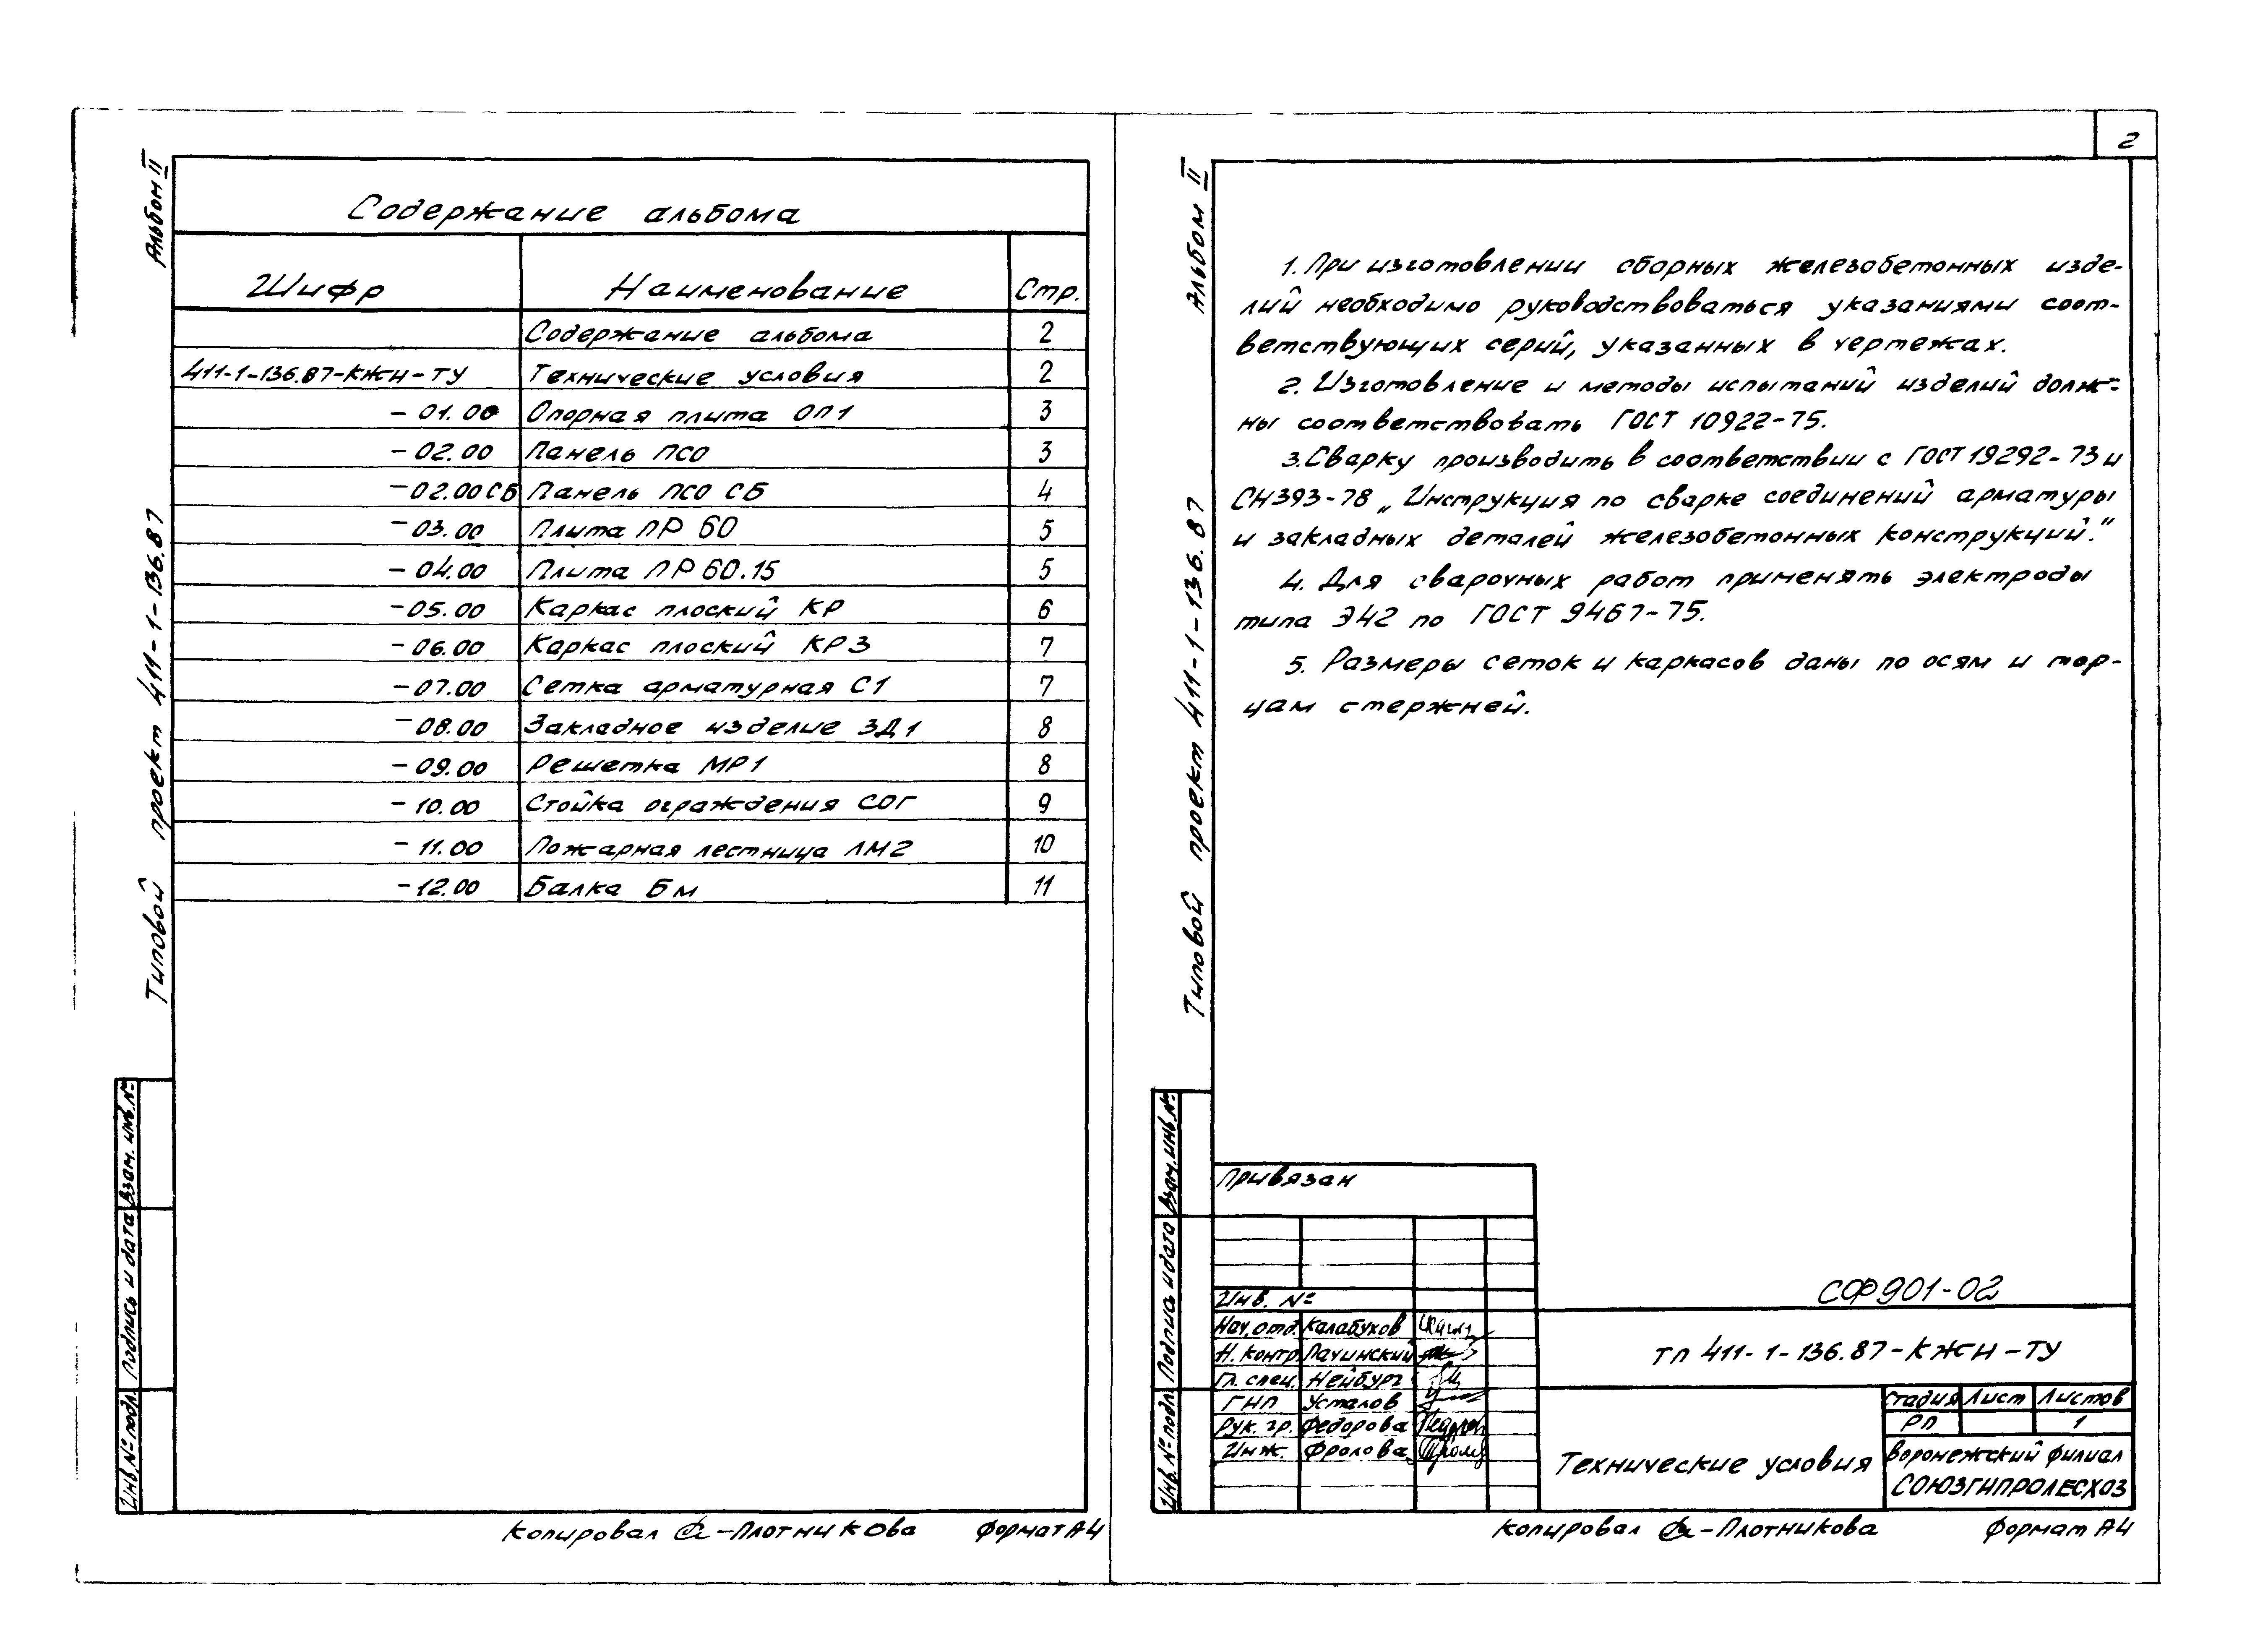 Альбом II
Типовой проект 411-1-136.87
Содержание альбома
Шифр Наименование Стр.
Содержание альбома 2
411-1-136.87-КЖН-ТУ Технические условия 2
-01.00 Опорная плита ОП1 3
-02.00 Панель ПСО 3
-02.00СБ Панель ПСО СБ 4
-03.00 Плита ПР 60 5
-04.00 Плита ПР 60.15 5
-05.00 Каркас плоский КР 6
-06.00 Каркас плоский КР3 7
-07.00 Сетка арматурная С1 7
-08.00 Закладное изделие ЗД1 8
-09.00 Решетка МР1 8
-10.00 Стойка ограждения СОГ 9
-11.00 Пожарная лестница ЛМ2 10
-12.00 Балка Бм 11
Взам. инв. №
Подпись и дата
Инв. № подл.
Копировал -Плотникова Формат А4
2
Альбом II
Типовой проект 411-1-136.87
1. При изготовлении сборных железобетонных изде-
лий необходимо руководствоваться указаниями соот-
ветствующих серий, указанных в чертежах.
2. Изготовление и методы испытаний изделий долж-
ны соответствовать ГОСТ 10922-75.
3. Сварку производить в соответствии с ГОСТ 19292-73 и
СН393-78 „Инструкция по сварке соединений арматуры
и закладных деталей железобетонных конструкций."
4. Для сварочных работ применять электроды
типа Э42 по ГОСТ 9467-75.
5. Размеры сеток и каркасов даны по осям и тор-
цам стержней.
Взам. инв. №
Подпись и дата
Инв. № подл.
Привязан
Инв. №
СФ901-02
Нач. отд. Калабухов
Н. контр. Лачинский
Гл. спец. Нейбург
ГНП Усталов
Рук. гр. Федорова
Инж. Фролова
ТП 411-1-136.87-КЖН-ТУ
Технические условия
Стадия Лист Листов
РП 1
Воронежский филиал
СОЮЗГИПРОЛЕСХОЗ
Копировал -Плотникова Формат А4